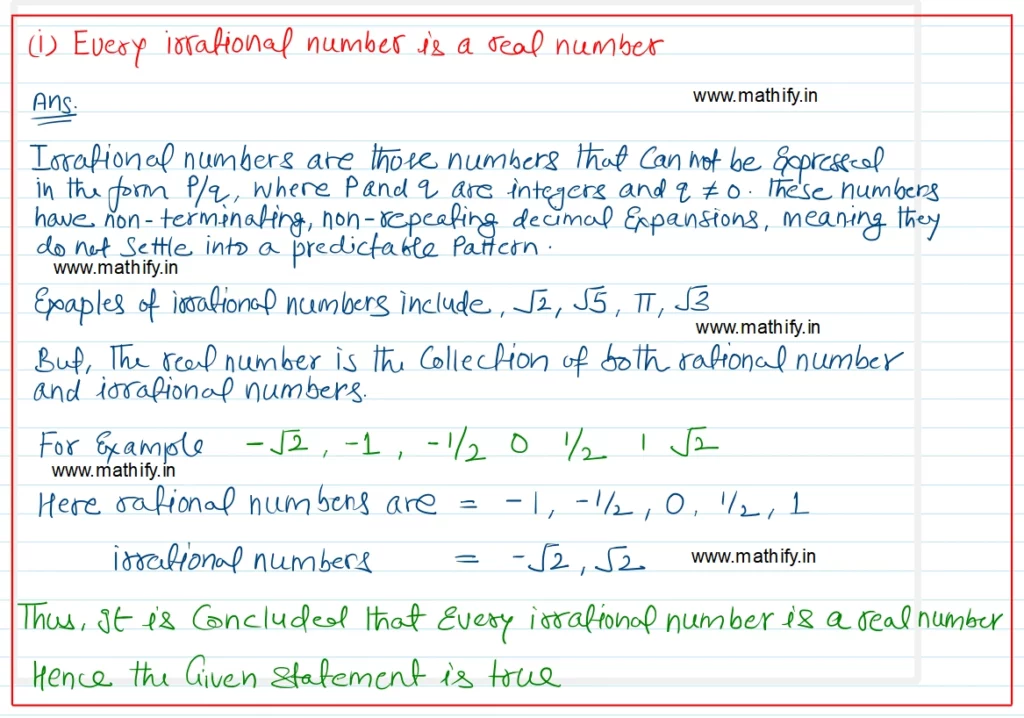 (i) Every irrational number is a real number
Ans.
www.mathify.in
Irrational numbers are those numbers that Can not be Expressed
in the form P/q, where P and q are integers and q ≠ 0. These numbers
have non-terminating, non-repeating decimal Expansions, meaning they
do not Settle into a predictable Pattern.
www.mathify.in
Exaples of irrational numbers include, √2, √5, π, √3
www.mathify.in
But, The real number is the Collection of both rational number
and irrational numbers.
For Example -√2, -1, -1/2 0 1/2 1 √2
www.mathify.in
Here rational numbers are = -1, -1/2, 0, 1/2, 1
irrational numbers = -√2, √2
www.mathify.in
Thus, It is Concluded that Every irrational number is a real number
Hence the Given Statement is true